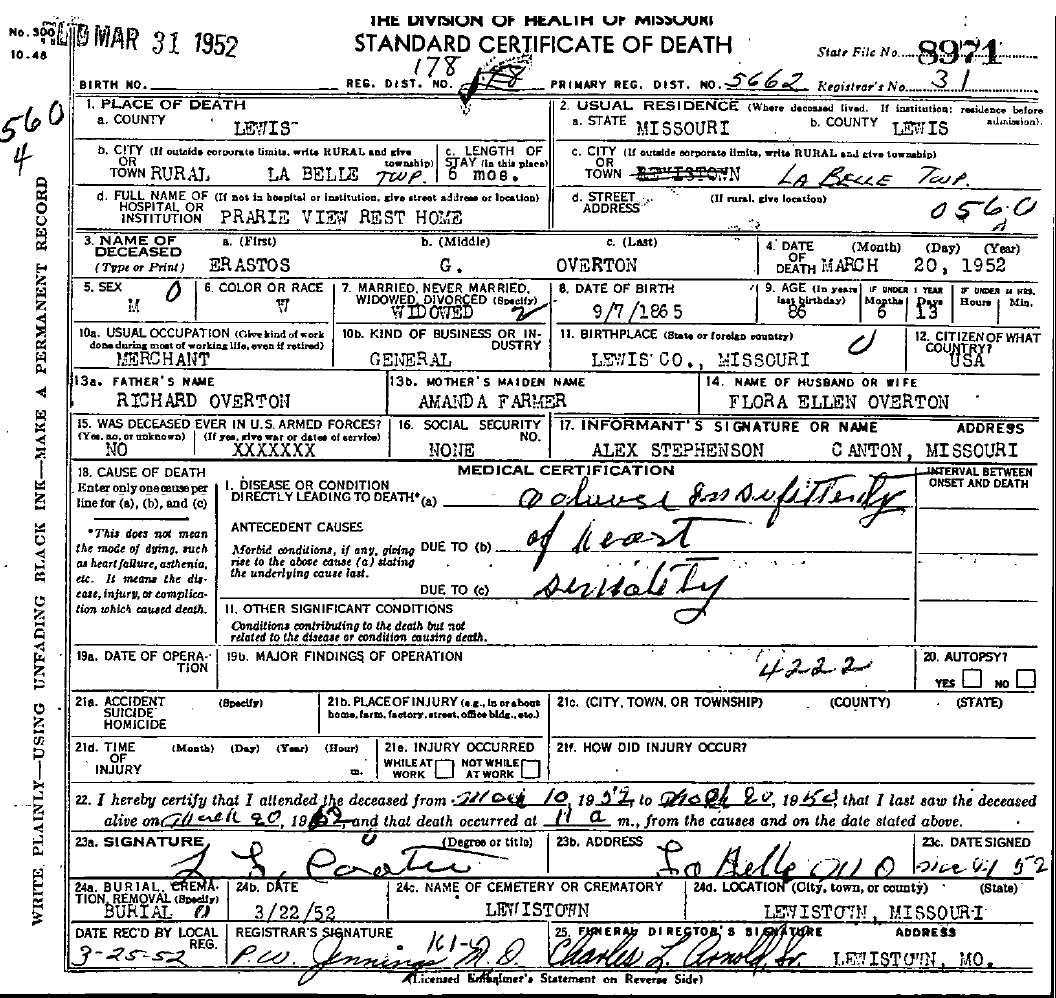 THE DIVISION OF HEALTH OF MISSOURI
STANDARD CERTIFICATE OF DEATH
No. 300
10.48
MAR 31 1952
State File No. 8971
BIRTH NO. REG. DIST. NO. 178 PRIMARY REG. DIST. NO. 5662 Registrar's No. 31
560
4
WRITE PLAINLY—USING UNFADING BLACK INK—MAKE A PERMANENT RECORD
1. PLACE OF DEATH
a. COUNTY LEWIS
2. USUAL RESIDENCE (Where deceased lived. If institution: residence before admission).
a. STATE MISSOURI b. COUNTY LEWIS
b. CITY (If outside corporate limits, write RURAL and give township)
OR
TOWN RURAL LA BELLE TWP.
c. LENGTH OF
STAY (in this place)
6 mos.
c. CITY (If outside corporate limits, write RURAL and give township)
OR
TOWN LEWISTOWN LA BELLE TWP.
d. FULL NAME OF (If not in hospital or institution, give street address or location)
HOSPITAL OR
INSTITUTION PRARIE VIEW REST HOME
d. STREET (If rural, give location)
ADDRESS 0560
3. NAME OF DECEASED
(Type or Print)
a. (First) ERASTOS
b. (Middle) G.
c. (Last) OVERTON
4. DATE OF DEATH (Month) (Day) (Year)
MARCH 20, 1952
5. SEX
M 0
6. COLOR OR RACE
W
7. MARRIED, NEVER MARRIED,
WIDOWED, DIVORCED (Specify)
WIDOWED 2
8. DATE OF BIRTH
9/7/1865
9. AGE (In years last birthday)
86
IF UNDER 1 YEAR
Months Days
6 13
IF UNDER 24 HRS.
Hours Min.
10a. USUAL OCCUPATION (Give kind of work
done during most of working life, even if retired)
MERCHANT
10b. KIND OF BUSINESS OR IN-
DUSTRY
GENERAL
11. BIRTHPLACE (State or foreign country)
LEWIS CO., MISSOURI 0
12. CITIZEN OF WHAT
COUNTRY?
USA
13a. FATHER'S NAME
RICHARD OVERTON
13b. MOTHER'S MAIDEN NAME
AMANDA FARMER
14. NAME OF HUSBAND OR WIFE
FLORA ELLEN OVERTON
15. WAS DECEASED EVER IN U.S. ARMED FORCES?
(Yes, no, or unknown) (If yes, give war or dates of service)
NO XXXXXXX
16. SOCIAL SECURITY
NO.
NONE
17. INFORMANT'S SIGNATURE OR NAME ADDRESS
ALEX STEPHENSON CANTON, MISSOURI
18. CAUSE OF DEATH
Enter only one cause per
line for (a), (b), and (c)
*This does not mean
the mode of dying, such
as heart failure, asthenia,
etc. It means the dis-
ease, injury, or complica-
tion which caused death.
MEDICAL CERTIFICATION
INTERVAL BETWEEN
ONSET AND DEATH
I. DISEASE OR CONDITION
DIRECTLY LEADING TO DEATH* (a)
ANTECEDENT CAUSES
Morbid conditions, if any, giving
rise to the above cause (a) stating
the underlying cause last.
DUE TO (b) of heart
DUE TO (c)
II. OTHER SIGNIFICANT CONDITIONS
Conditions contributing to the death but not
related to the disease or condition causing death.
19a. DATE OF OPERA-
TION
19b. MAJOR FINDINGS OF OPERATION
4222
20. AUTOPSY?
YES NO
21a. ACCIDENT (Specify)
SUICIDE
HOMICIDE
21b. PLACE OF INJURY (e.g., in or about
home, farm, factory, street, office bldg., etc.)
21c. (CITY, TOWN, OR TOWNSHIP) (COUNTY) (STATE)
21d. TIME (Month) (Day) (Year) (Hour)
OF
INJURY m.
21e. INJURY OCCURRED
WHILE AT WORK NOT WHILE AT WORK
21f. HOW DID INJURY OCCUR?
22. I hereby certify that I attended the deceased from 10, 1952, to 20, 1952, that I last saw the deceased
alive on March 20, 1952, and that death occurred at 11 a m., from the causes and on the date stated above.
23a. SIGNATURE (Degree or title)
23b. ADDRESS
La Belle MO
23c. DATE SIGNED
52
24a. BURIAL, CREMA-
TION, REMOVAL (Specify)
BURIAL 0
24b. DATE
3/22/52
24c. NAME OF CEMETERY OR CREMATORY
LEWISTOWN
24d. LOCATION (City, town, or county) (State)
LEWISTOWN, MISSOURI
DATE REC'D BY LOCAL
REG.
3-25-52
REGISTRAR'S SIGNATURE
P.W. Jennings M.D.
25. FUNERAL DIRECTOR'S SIGNATURE ADDRESS
Charles L. Arnold, Jr. LEWISTOWN, MO.
(Licensed Embalmer's Statement on Reverse Side)